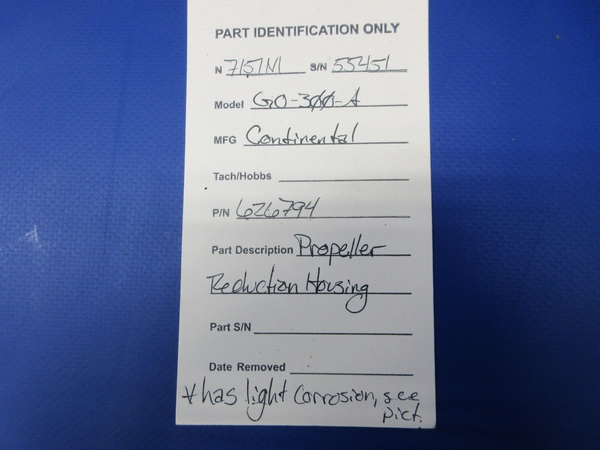 PART IDENTIFICATION ONLY
N 7151M S/N 55451
Model GO-300-A
MFG Continental
Tach/Hobbs
P/N 626794
Part Description Propeller
Reduction Housing
Part S/N
Date Removed
*has light corrosion, see
pict.